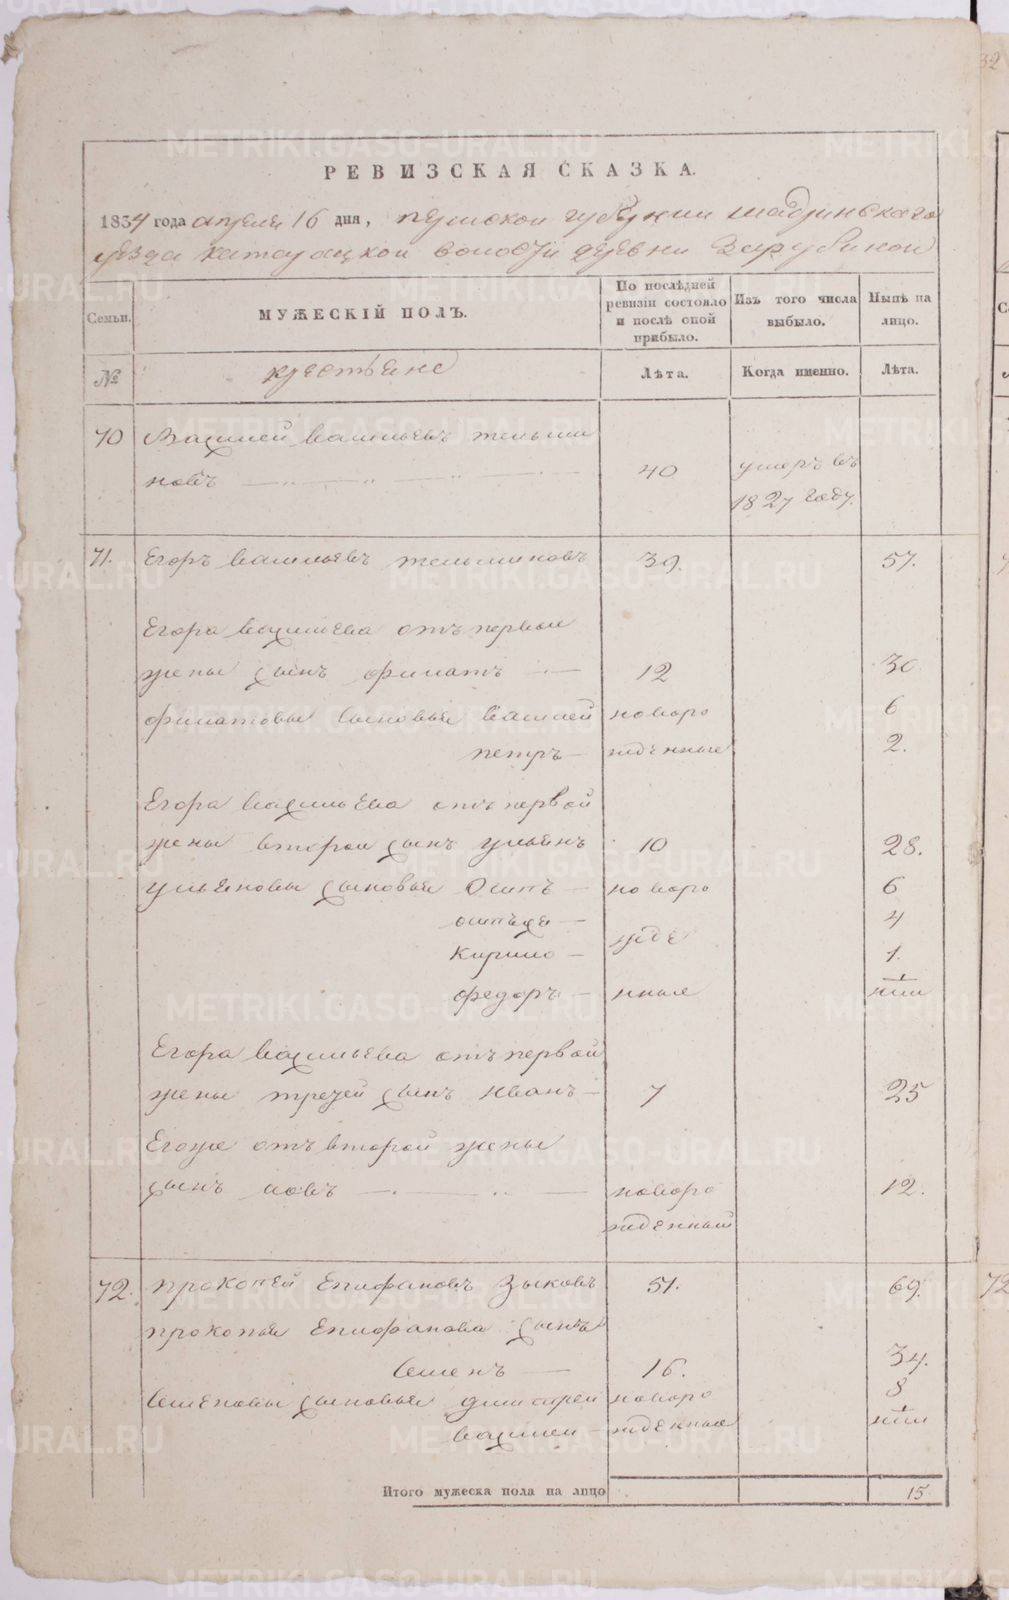 РЕВИЗСКАЯ СКАЗКА.
1834 года апреля 16 дня, пермской губернии шадринскаго
уезда катайской волости деревни Зырубиной
Семьи.
МУЖЕСКІЙ ПОЛЪ.
По послѣдней ревизіи состояло и послѣ оной прибыло.
Изъ того числа выбыло.
Нынѣ на лицо.
№
крестьяне
Лѣта.
Когда именно.
Лѣта.
70 Василей васильевъ
новъ 40 умеръ въ
1827 году.
71. Егоръ васильевъ 39. 57.
Егора васильева отъ первой
жены сынъ филатъ 12 30
филатовы сыновья василей новоро 6
петръ жденные 2.
Егора васильева отъ первой
жены второй сынъ ульянъ 10 28.
ульяновы сыновья Осипъ новоро 6
осипъже жде 4
Кирило 1.
федоръ нные 1/ним
Егора васильева отъ первой
жены третей сынъ иванъ 7 25
Егоже отъ второй жены
сынъ иовъ новоро 12.
жденный
72. прокопей Епифановъ Зыковъ 51. 69.
прокопья Епифанова сынъ
семенъ 16. 34.
семеновы сыновья дмитрей новоро 8
василей жденные 1/ним
Итого мужеска пола на лицо 15
METRIKI.GASO-URAL.RU